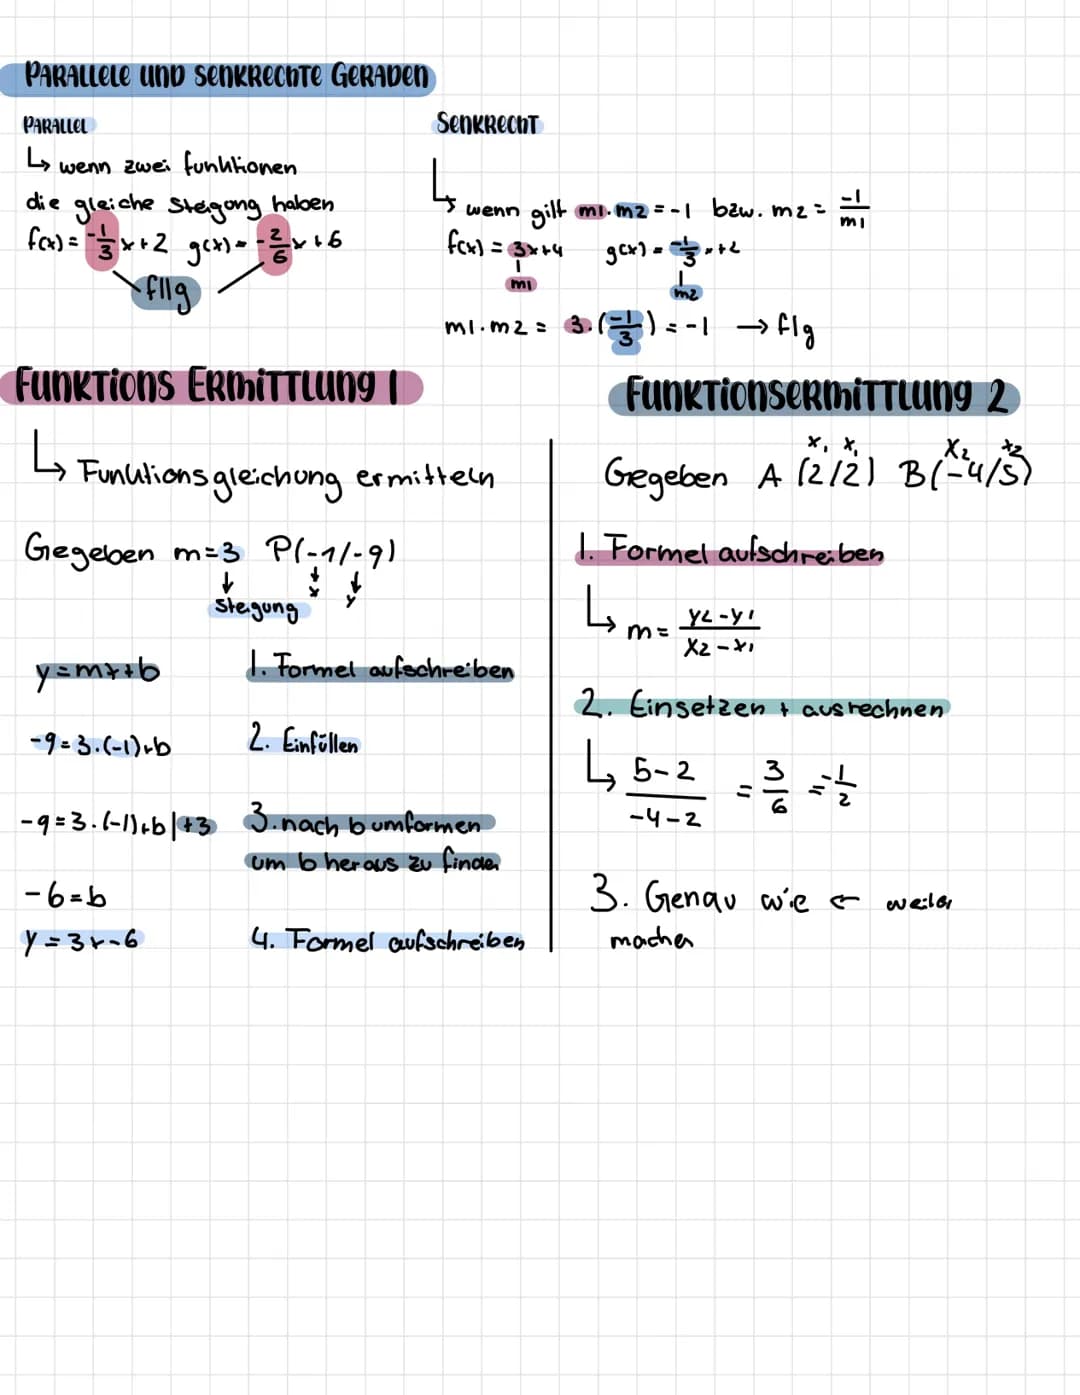 PARALLELE UND SENKRECHTE GERADEN
PARALLEL
↳ wenn zwei funktionen
die gleiche Steigung haben
f(x) = -1/3 x+2 g(x) = -2/6 x+6
f||g
SENKRECHT
↳ wenn gilt m1·m2 = -1 bzw. m2 = -1/m1
f(x) = 3x+4 g(x) = -1/3 x+2
m1 m2
m1·m2 = 3·(-1/3) = -1 → f⊥g
FUNKTIONS ERMITTLUNG 1
↳ Funktionsgleichung ermitteln
Gegeben m=3 P(-1/-9)
↓ ↓ ↓
Steigung x y
y=mx+b 1. Formel aufschreiben
-9=3·(-1)+b 2. Einfüllen
-9=3·(-1)+b |+3 3. nach b umformen
um b heraus zu finden
-6=b
y=3x-6 4. Formel aufschreiben
FUNKTIONSERMITTLUNG 2
x1 x1 x2 x2
Gegeben A (2/2) B(-4/5)
1. Formel aufschreiben
↳ m= y2-y1/x2-x1
2. Einsetzen + ausrechnen
↳ 5-2/-4-2 = 3/6 = -1/2
3. Genau wie ← weiter
machen